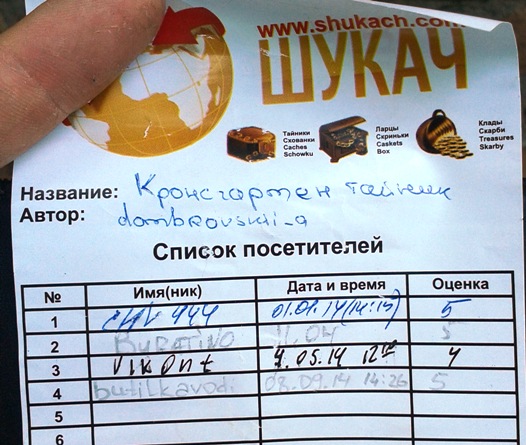 www.shukach.com
ШУКАЧ
Тайники
Схованки
Caches
Schowku
Ларцы
Скриньки
Caskets
Box
Клады
Скарби
Treasures
Skarby
Название: Кронсгартен тайник
Автор: dombrovskii_a
Список посетителей
№ Имя(ник) Дата и время Оценка
1 444 01.01.14 5
2 BURATINO 11.04 5
3 VIKONt 4.05.14 12 4
4 butilkavodi 08.09.14 14:26 5
5
6